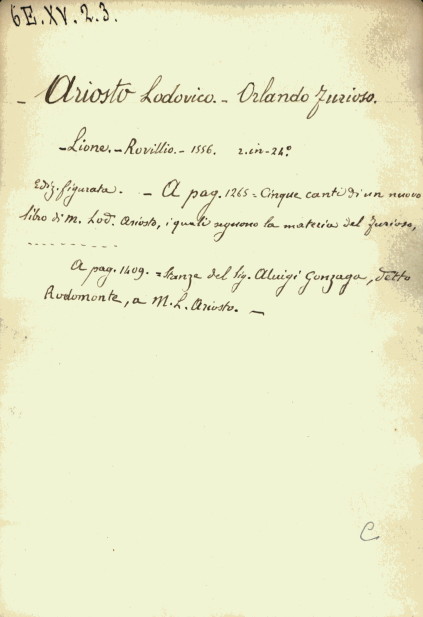 6E.XV.2.3.
- Ariosto Lodovico. - Orlando Furioso.
- Lione. - Rovillio. - 1556. 2. in-24º
Ediz. figurata. - A pag. 1265 = Cinque canti di un nuovo
libro di M. Lod. Ariosto, i quali seguono la materia del Furioso,
- - - - - - - - - -
A pag. 1409. = Stanze del Sig. Aluigi Gonzaga, detto
Rodomonte, a M. L. Ariosto. -
C